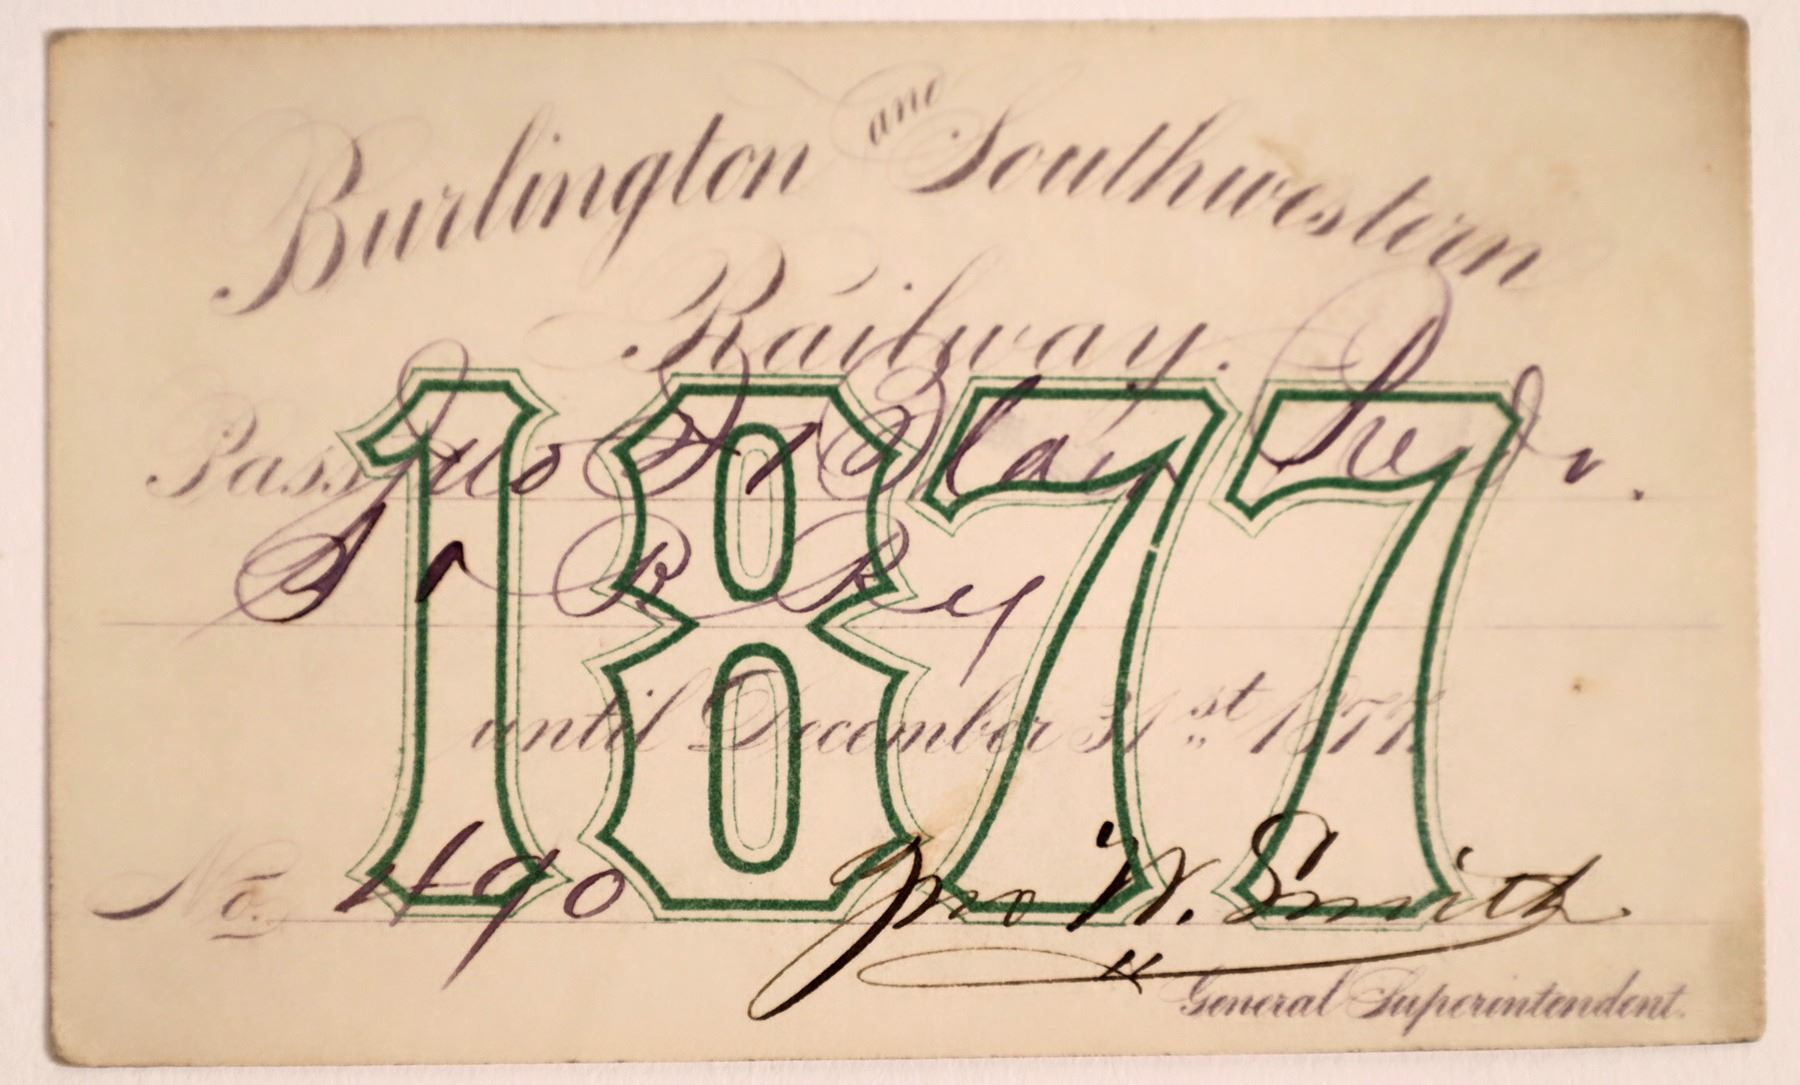 Burlington and Southwestern
Railway.
Pass Jno I. Blair Prest.
S. C. & P. Ry
until December 31st 1877
1877
No. 490 Jno W. Smith
General Superintendent.